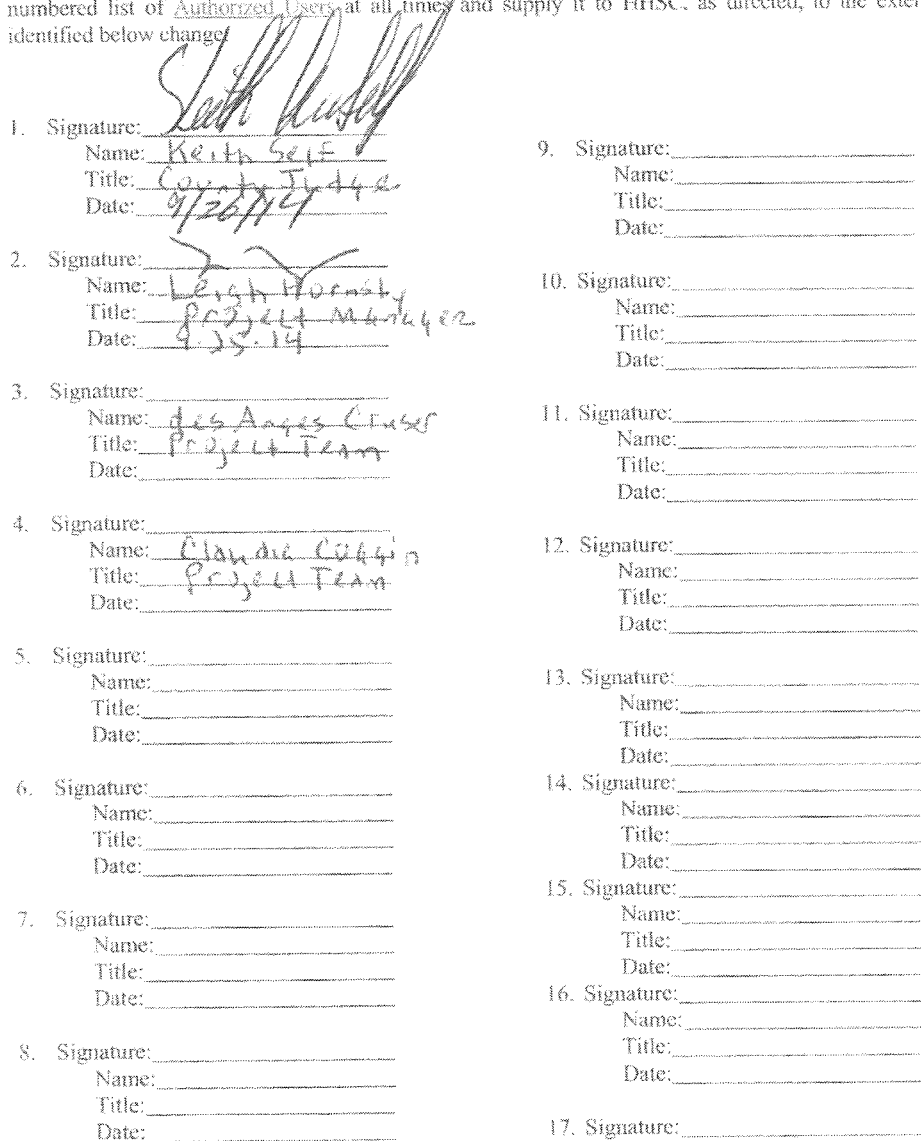 numbered list of Authorized Users at all times and supply it to HHSC, as directed, to the exter
identified below change
1. Signature:
Name: Keith Self
Title: County Judge
Date: 9/26/14
2. Signature:
Name: Leigh Hornsby
Title: Project Manager
Date: 9.25.14
3. Signature:
Name: des Anges Cruser
Title: Project Team
Date:
4. Signature:
Name: Claudia Coggin
Title: Project Team
Date:
5. Signature:
Name:
Title:
Date:
6. Signature:
Name:
Title:
Date:
7. Signature:
Name:
Title:
Date:
8. Signature:
Name:
Title:
Date:
9. Signature:
Name:
Title:
Date:
10. Signature:
Name:
Title:
Date:
11. Signature:
Name:
Title:
Date:
12. Signature:
Name:
Title:
Date:
13. Signature:
Name:
Title:
Date:
14. Signature:
Name:
Title:
Date:
15. Signature:
Name:
Title:
Date:
16. Signature:
Name:
Title:
Date:
17. Signature: